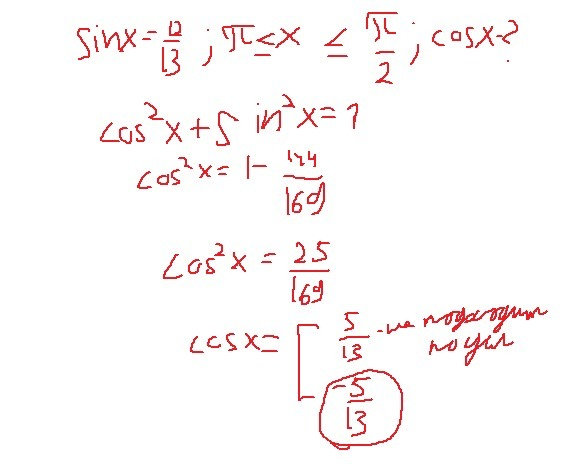 sinx = 12/13 ; π ≤ x ≤ π/2 ; cosx-?
cos²x + sin²x = 1
cos²x = 1 - 144/169
cos²x = 25/169
cosx = [ 5/13 - не подходит
по усл
-5/13